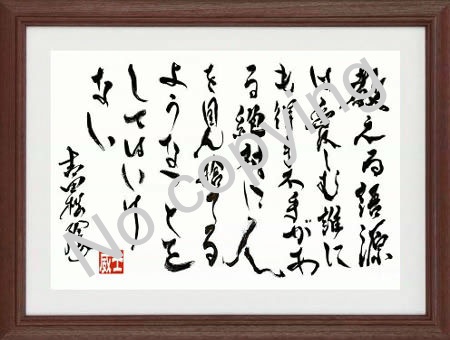 教える語源
は愛しむ誰に
も手不手があ
る絶対に人
を見捨てる
ようなことを
してはいけ
ない
吉田松陰
No copying